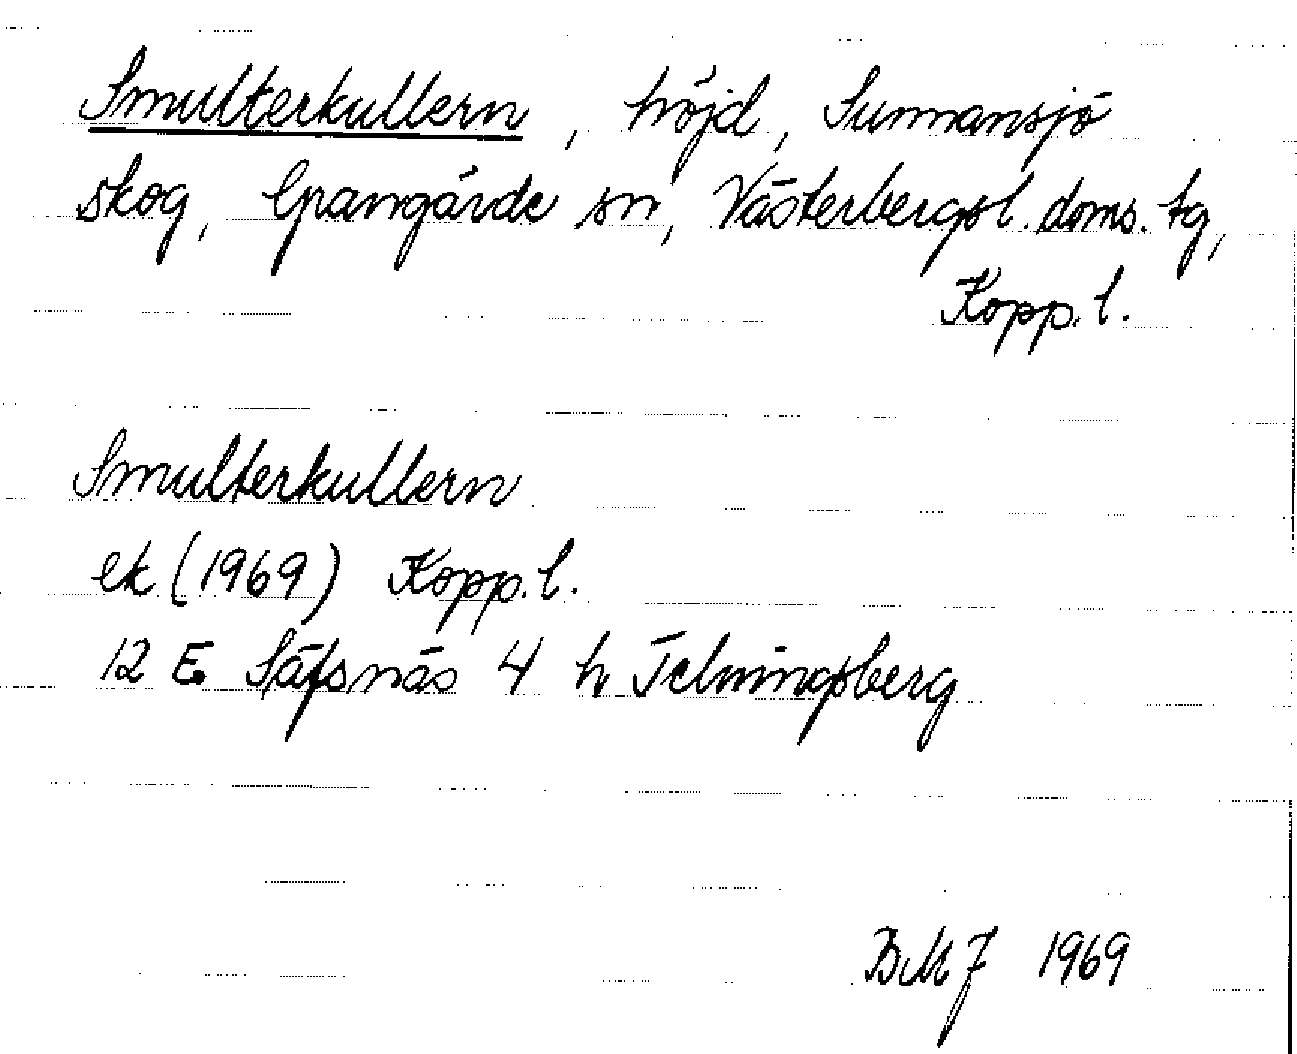 Smulterkullern, höjd, Sunnansjö
skog, Grangärde sn, Västerbergsl. doms. tg,
Kopp. l.
Smulterkullern
ek (1969) Kopp. l.
12 E. Säfsnäs 4 h Telningsberg
BMJ 1969